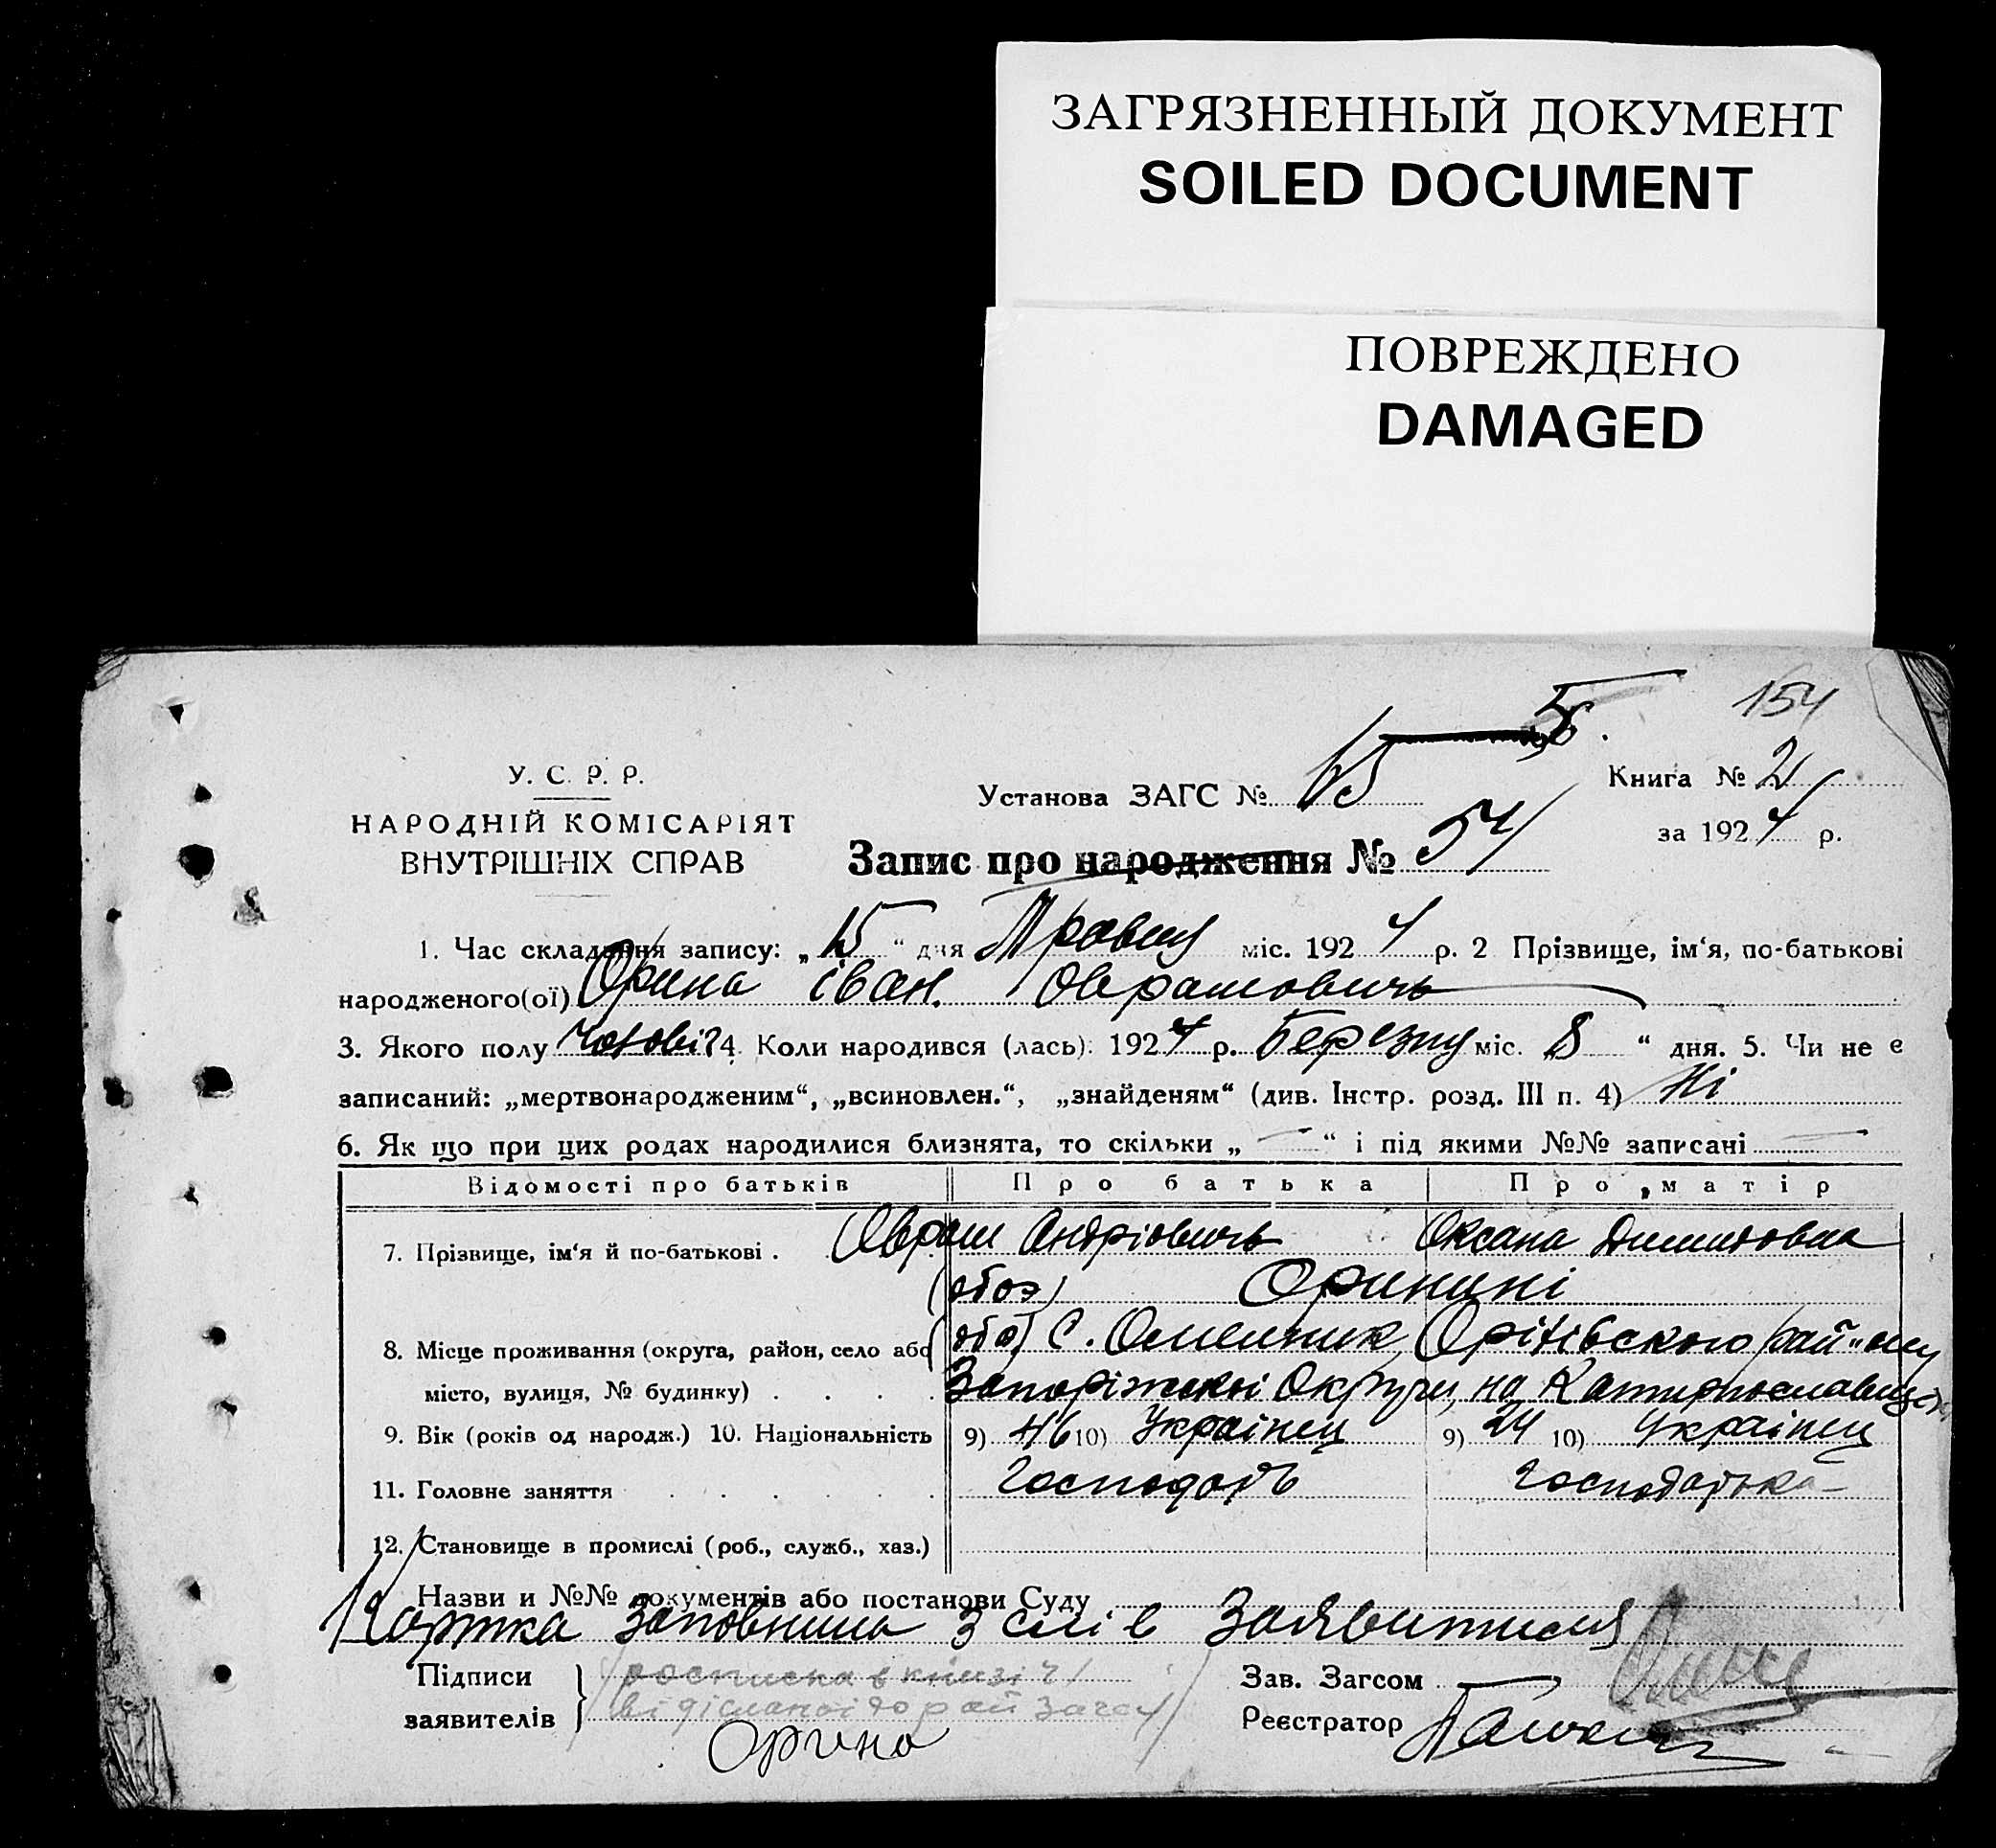 ЗАГРЯЗНЕННЫЙ ДОКУМЕНТ
SOILED DOCUMENT
ПОВРЕЖДЕНО
DAMAGED
154
У. С. Р. Р.
НАРОДНІЙ КОМІСАРІЯТ
ВНУТРІШНІХ СПРАВ
Установа ЗАГС №
Книга № 2
за 1924 р.
Запис про народження № 54
1. Час складення запису: „15“ дня Травня міс. 1924 р. 2 Прізвище, ім‘я, по-батькові
народженого(ої) Орина Іван Оврамовичь
3. Якого полу чоловіч 4. Коли народився (лась): 1924 р. Березня міс. „8“ дня. 5. Чи не є
записаний: „мертвонародженим“, „всиновлен.“, „знайденям“ (див. Інстр. розд. III п. 4) Ні
6. Як що при цих родах народилися близнята, то скільки „ — “ і під якими №№ записані —
Відомості про батьків Про батька Про матір
7. Прізвище, ім‘я й по-батькові . Оврам Андріовичь Оксана Демидовна
(обоє) Оринині
8. Місце проживання (округа, район, село або (обоє) С. Омельник, Оріхівського району
місто, вулиця, № будинку) . . . . Запоріжської Округи, на Катеринославщ
9. Вік (років од народж.) 10. Національність 9) 46 10) Українец 9) 24 10) Українец
11. Головне заняття . . . . . . Господарь Господарька
12. Становище в промислі (роб., служб., хаз.)
Назви и №№ документів або постанови Суду
Картка заповнена з слів Заявителя
Підписи росписка в книзі
заявителів відісланої до рай Загсу
Орина
Зав. Загсом
Реєстратор